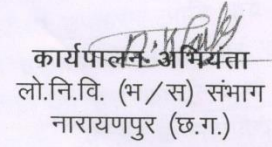 कार्यपालन अभियंता
लो.नि.वि. (भ/स) संभाग
नारायणपुर (छ.ग.)